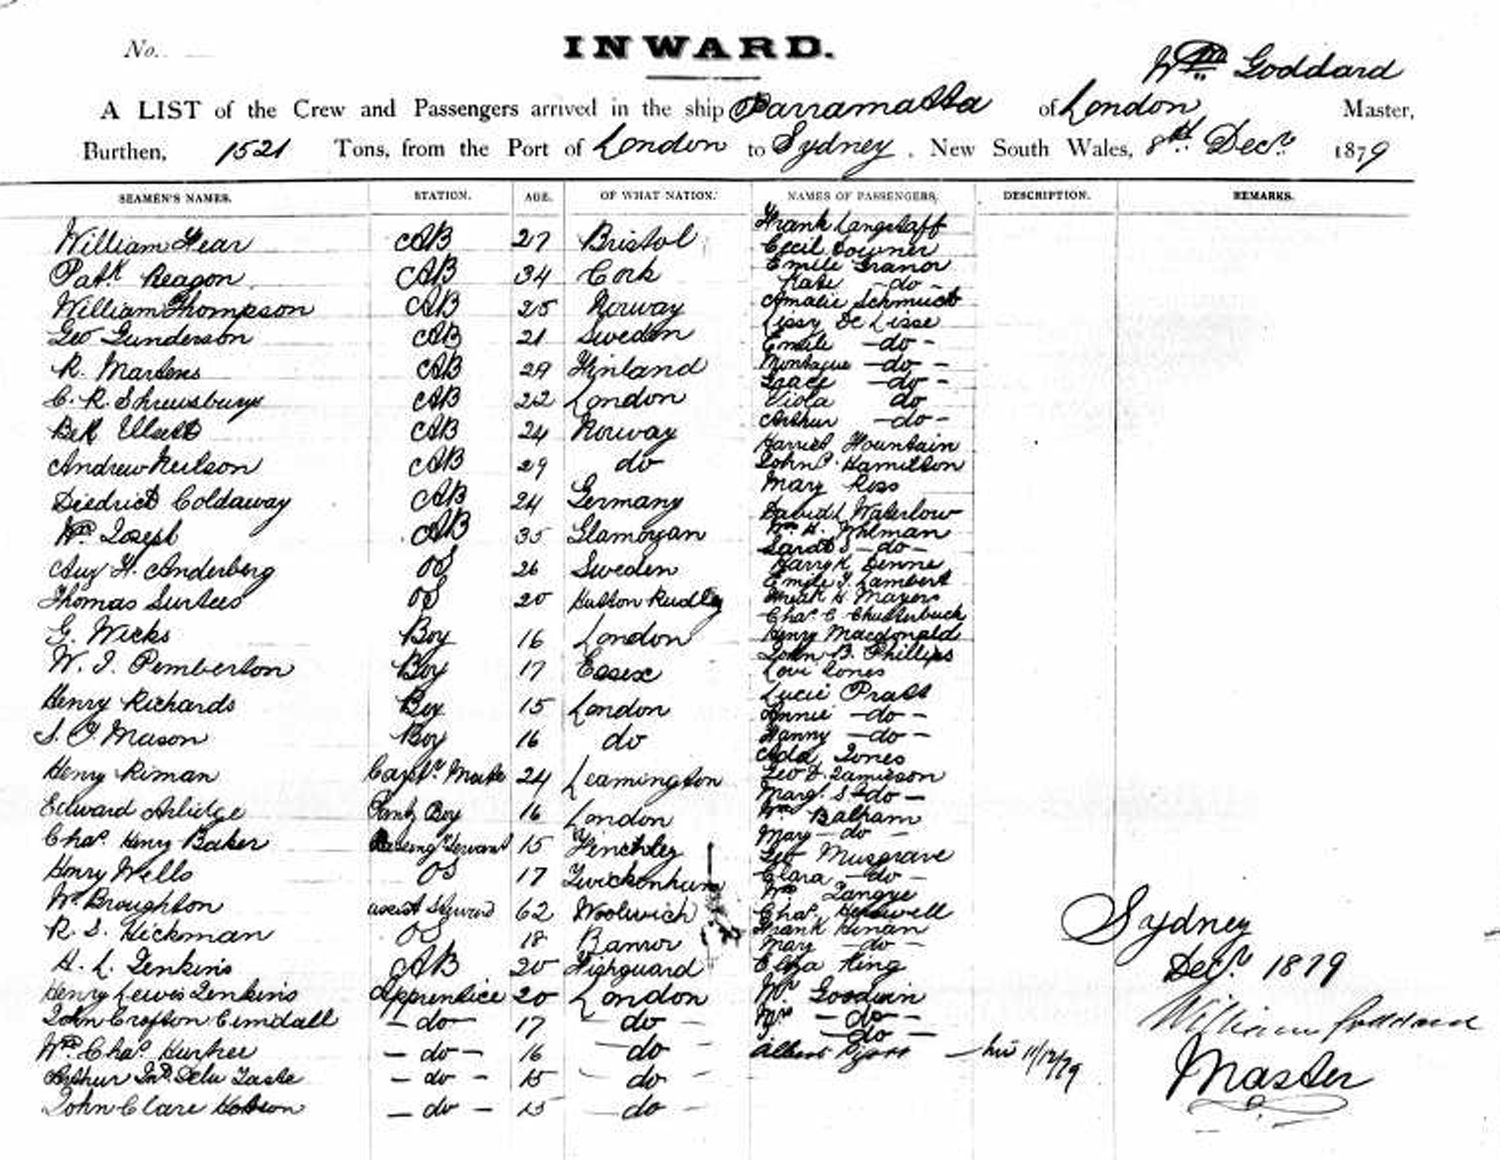 No.
INWARD.
Wm Goddard
A LIST of the Crew and Passengers arrived in the ship Parramatta of London Master,
Burthen, 1521 Tons, from the Port of London to Sydney, New South Wales, 8th Decr. 1879
SEAMEN'S NAMES. STATION. AGE. OF WHAT NATION. NAMES OF PASSENGERS, DESCRIPTION. REMARKS.
Frank Langstaff
William Fear AB 27 Bristol
Cecil Downer
Emile Granor
Patk Reagon AB 34 Cork
Kate - do -
William Thompson AB 25 Norway Amalie Schmuck
Lissy De Lisse
Geo Gunderson AB 21 Sweden
Emile - do -
R. Martens AB 29 Finland Montague - do -
Grace - do -
C. R. Shrewsbury AB 22 London Viola do
Arthur - do -
AB 24 Norway
Harriet Fountain
Andrew Neilson AB 29 do John Hamilton
Mary Ross
Diedrick Coldaway AB 24 Germany
David Waterlow
Wm Joseph AB 35 Glamorgan Wm H. Uhlman
Sarah S - do -
Aug H. Anderberg OS 26 Sweden Harry K Bennie
Emile J. Lambert
Thomas Surtees OS 20 Hutton Rudley H Mayers
Chas. C Chusterbuck
G. Wicks Boy 16 London Henry Macdonald
John B. Phillips
W. J. Pemberton Boy 17 Essex Lovi Jones
Lucie Pratt
Henry Richards Boy 15 London Annie - do -
S. J. Mason Boy 16 do Fanny - do -
Ada Jones
Henry Riman Carptr Mate 24 Leamington Geo D. Jamieson
Margt. S. - do -
Edward Arlidge Boy 16 London Wm Balham
Mary - do -
Chas. Henry Baker Servant 15 Finchley Geo Musgrave
Henry Wells OS 17 Twickenham Clara - do -
Wm Tangye
Wm Broughton assist Steward 62 Woolwich Chas.
Frank Henan
R. S. Hickman OS 18 Mary - do -
H. L. Jenkins AB 20 Fishguard Eliza King
Henry Lewis Jenkins Apprentice 20 London Mr. Goodwin
John Crofton - do - 17 - do - Mrs - do -
- do -
Wm Chas. - do - 16 - do - Albert 11/12/79
Arthur - do - 15 - do -
John Clare - do - 15 - do -
Sydney
Decr. 1879
William Goddard
Master